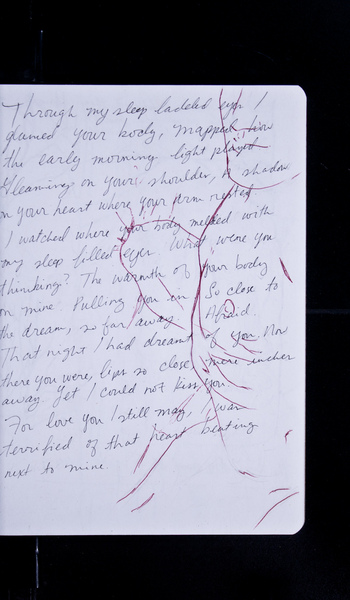 Through my sleep ladeled eyes I
glanced your body, mapped how
the early morning light played
Gleaming on your shoulder, a shadow
on your heart where your arm rested
I watched where your body melted with
my sleep filled eyes. What were you
thinking? The warmth of your body
on mine. Pulling you in So close to
the dream, so far away. Afraid.
That night I had dreamt of you. Now
there you were, lips so close, mere inches
away. Yet I could not kiss you.
For love you I still may, I was
terrified of that heart beating
next to mine.